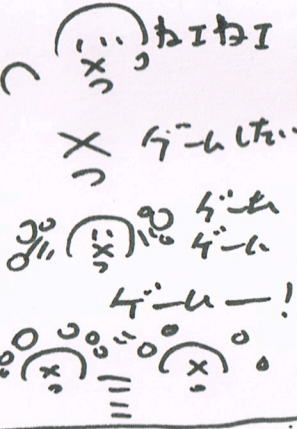 ねェねェ
ゲームしたい
ゲーム
ゲーム
ゲームー!